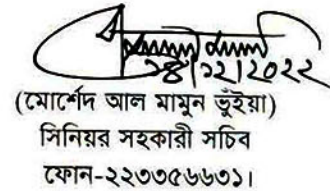 ২৪/১২/2022
(মোর্শেদ আল মামুন ভূঁইয়া)
সিনিয়র সহকারী সচিব
ফোন-২২৩৩৫৬৬৩১।